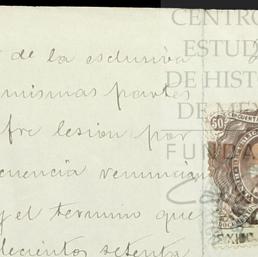 de la esclusiva
mismas partes
fre lesion por
cuencia renuncian
y el termino que
decientos setenta
CENTRO
ESTUD
DE HIST
DE ME
FUNDA
50
CINCUENTA